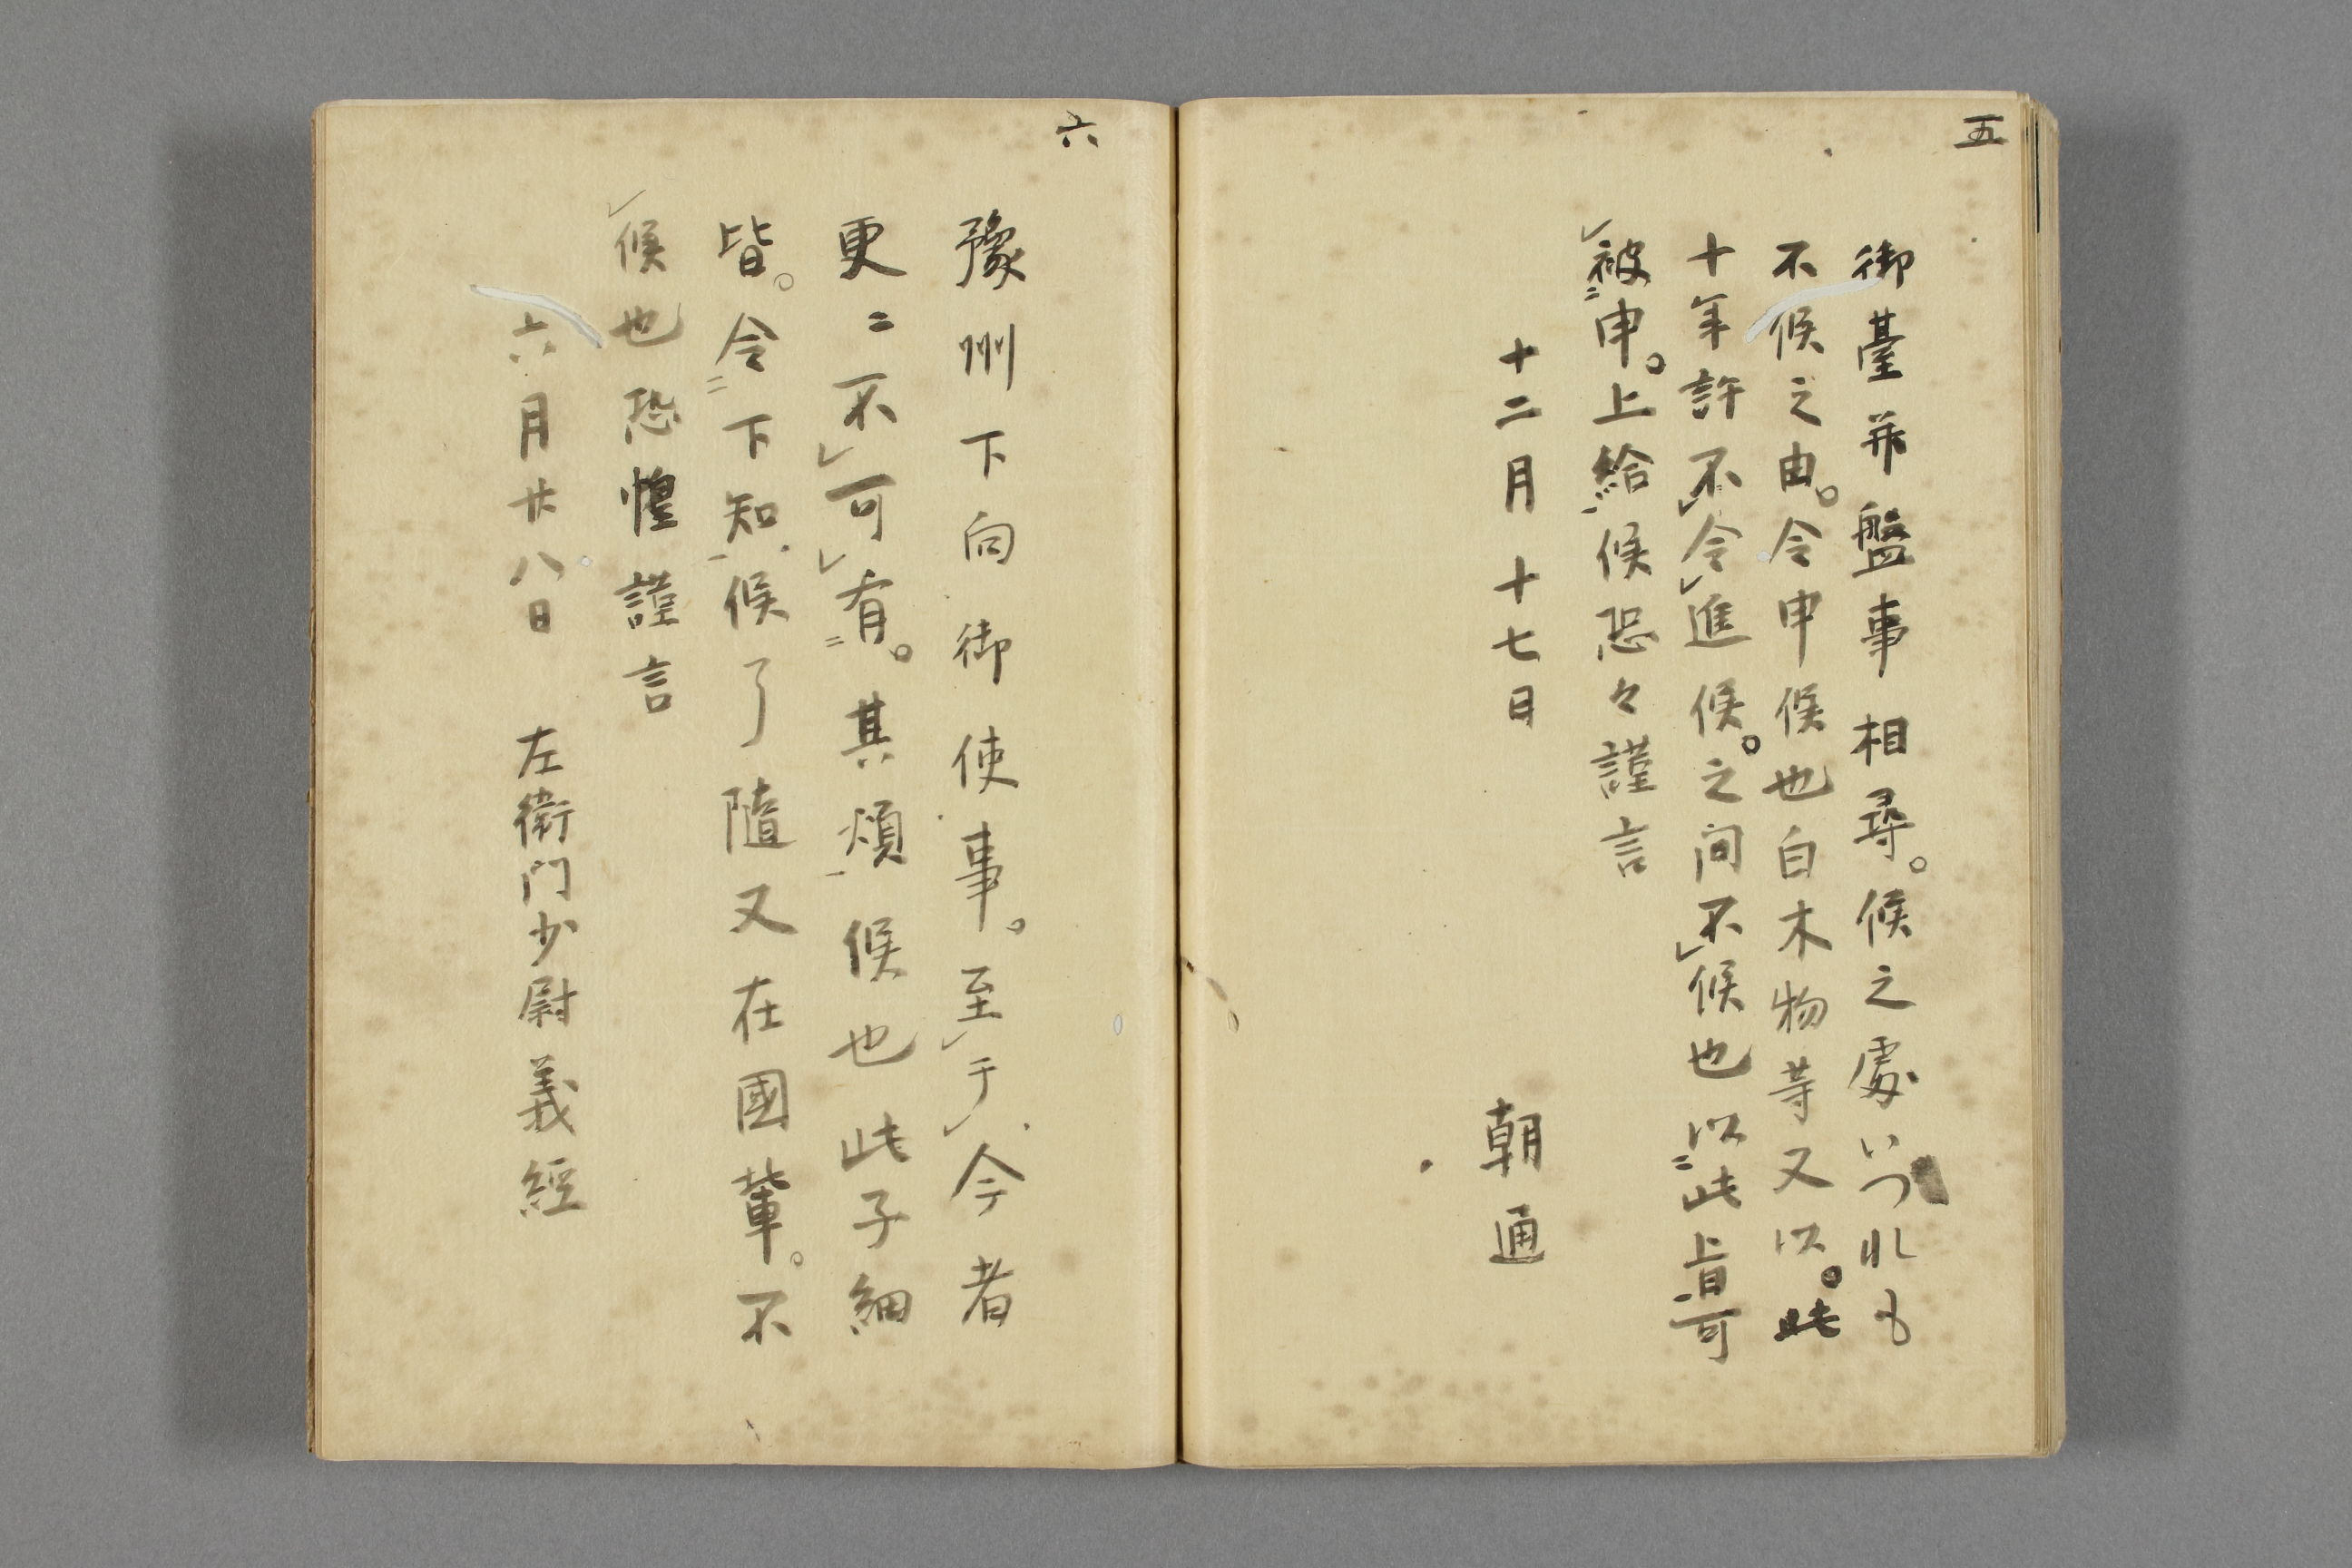 五
御臺并盤事相尋。候之處いつれも
不候之由。令申候也白木物等又以。此
十年許不令進候。之间不候也以此旨可
被申。上給候恐々謹言
十二月十七日
朝通
六
豫州下向御使事。至于今者
更ニ不可有。其煩候也此子細
皆。令下知候了隨又在國輩。不
候也恐惶謹言
六月廿八日 左衛门少尉義經